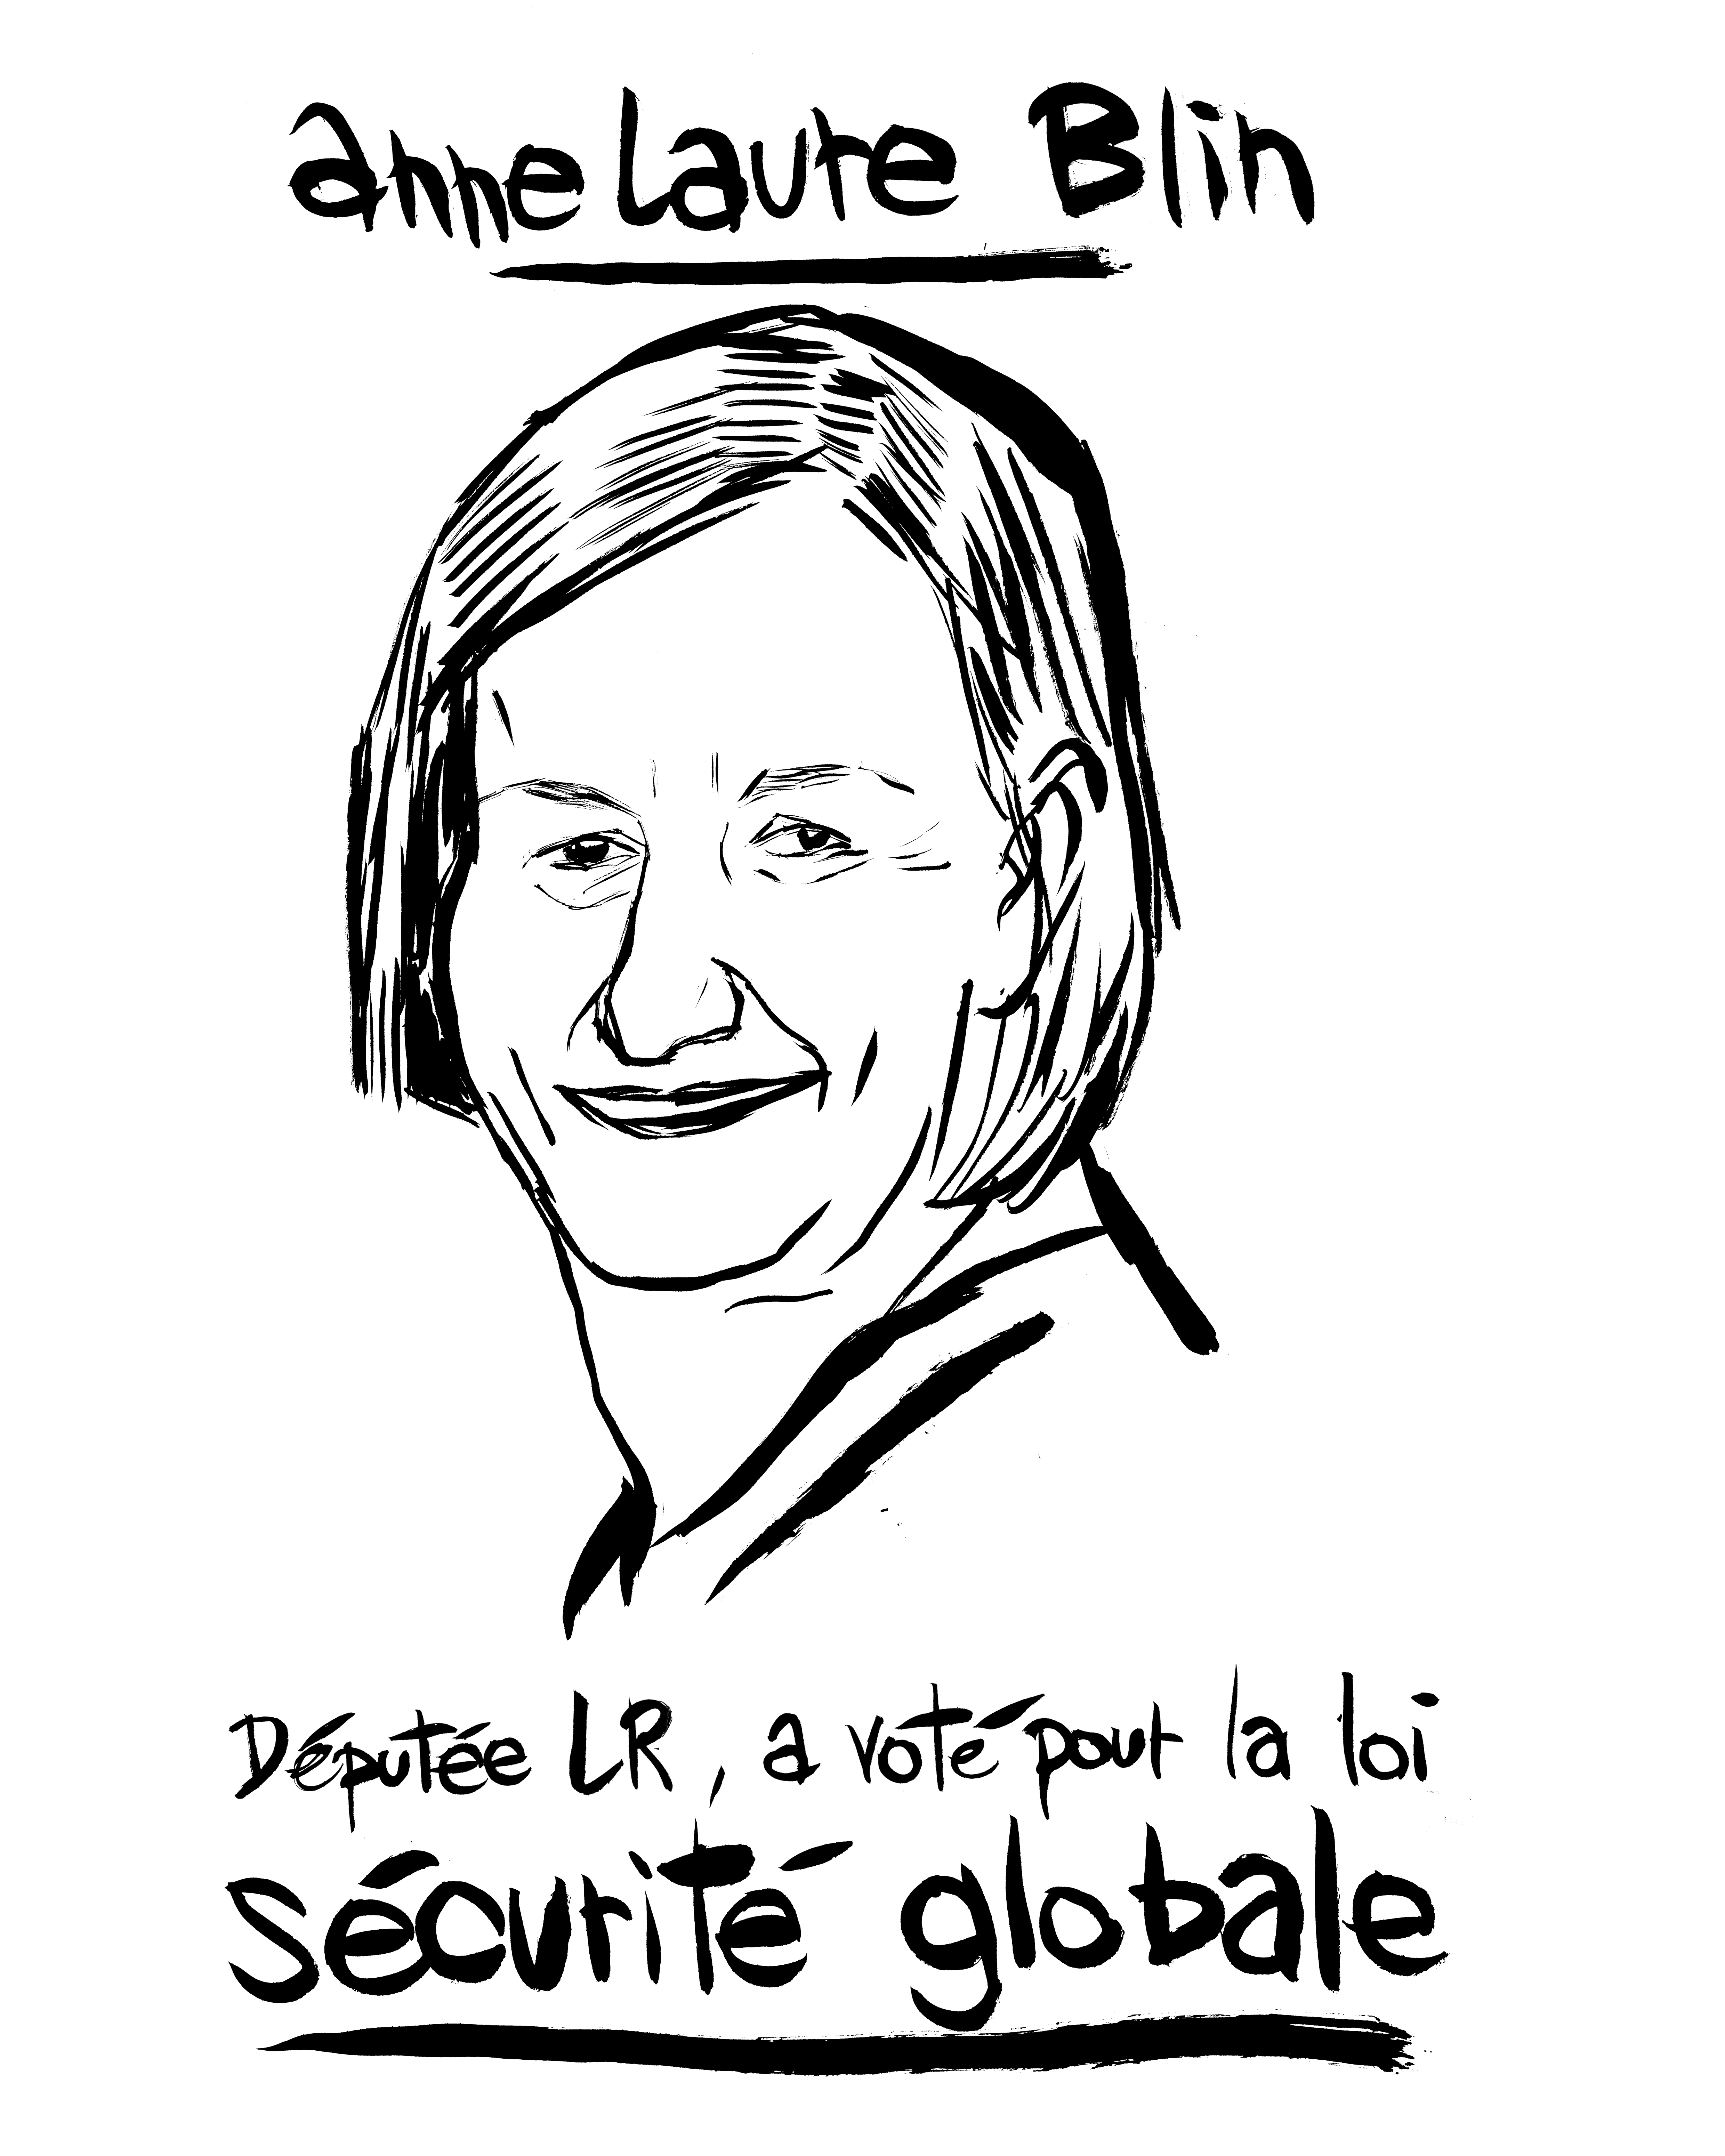 anne laure Blin
Députée LR, a voté pour la loi
sécurité globale